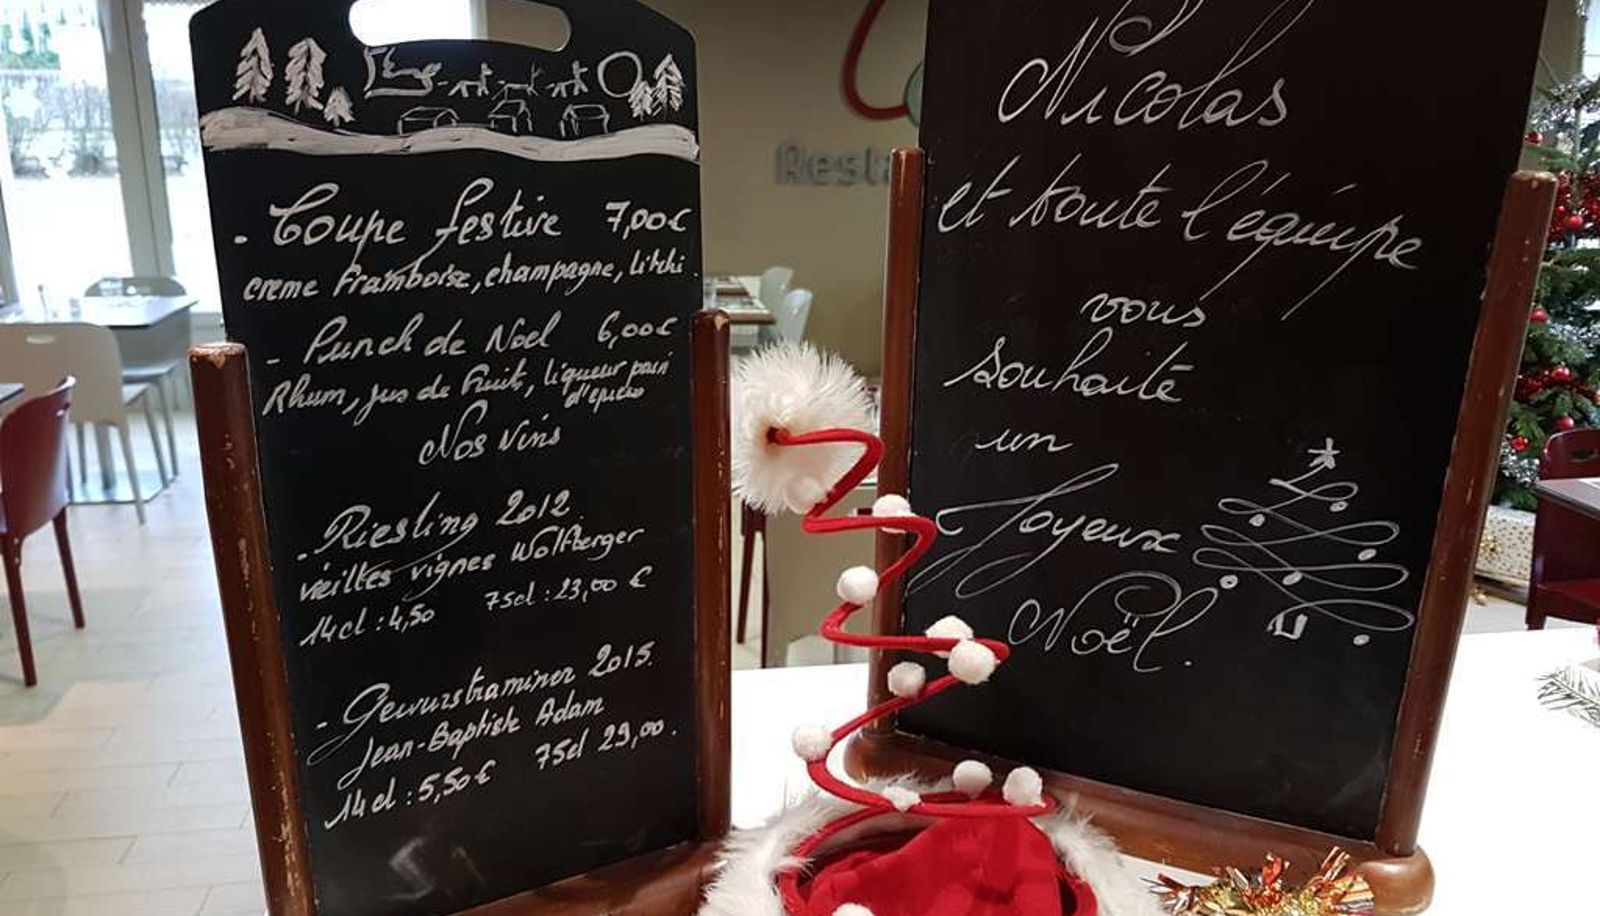 - Coupe festive 7,00€
creme Framboise, champagne, litchi.
- Punch de Noel 6,00€
Rhum, jus de Fruit, liqueur pain
d'épices
Nos vins
- Riesling 2012
vieilles vignes Wolfberger
14cl : 4,50 75cl : 23,00 €
- Gewurstraminer 2015.
Jean-Baptiste Adam
14cl : 5,50€ 75cl 29,00.
Resta
Nicolas
et toute l'équipe
vous
souhaite
un
Joyeux
Noël.